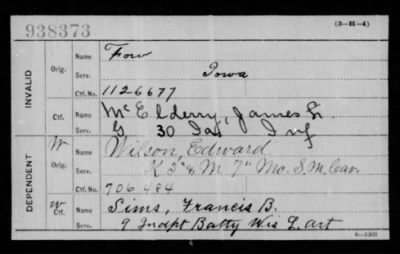 938373
(3-H-4)
INVALID
Orig.
Name
Serv. Iowa
Ctf. No. 1126677
Ctf.
Name McElderry, James L.
Serv. G 30 Iowa Inf
DEPENDENT
W
Orig.
Name Wilson, Edward
Serv. K 3" & M 7" Mo. S.M. Cav.
Ctf. No. 706484
W
Ctf.
Name Sims, Francis B.
Serv. 9 Indpt Batty Wis L. art